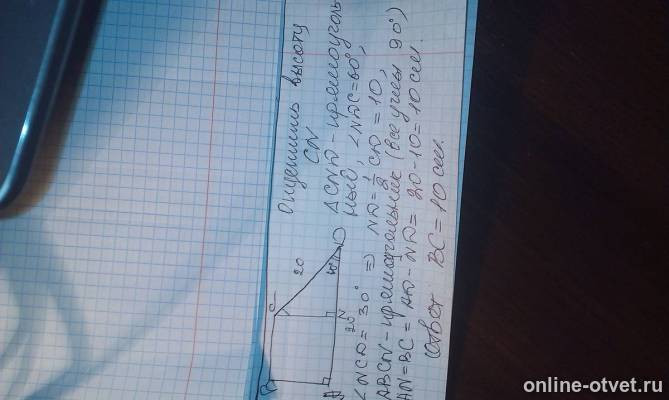 Опустишь высоту
CN
△CND - прямоуголь
ный, ∠NDC=60°,
∠NCD = 30° ⇒ ND = 1/2 CD = 10,
ABCN - прямоугольник (все углы 90°)
AN = BC = AD - ND = 20 - 10 = 10 см.
Ответ: BC = 10 см.
B
C
20
60°
D
N
20
A
online-otvet.ru